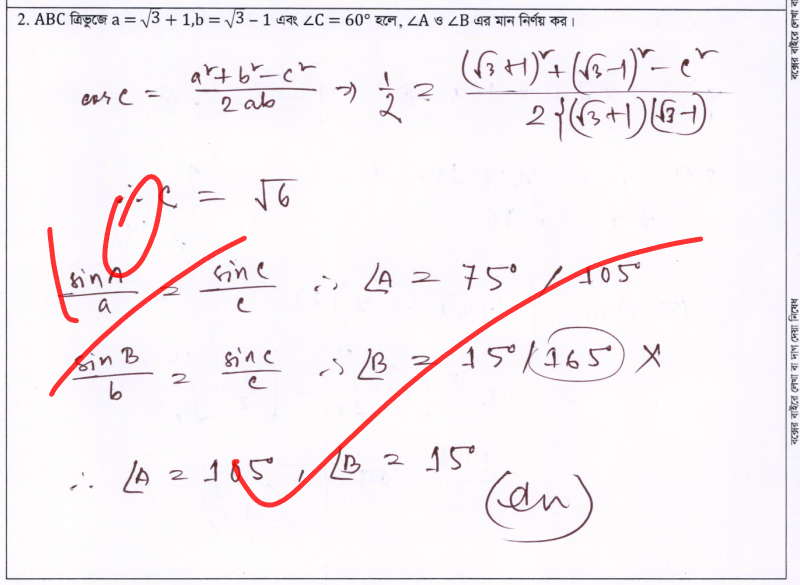 2. ABC ত্রিভুজে a = √3 + 1,b = √3 − 1 এবং ∠C = 60° হলে, ∠A ও ∠B এর মান নির্ণয় কর।
cos C = (a² + b² − c²) / 2ab ⇒ 1/2 = ((√3+1)² + (√3−1)² − c²) / 2{(√3+1)(√3−1)
∴ c = √6
sin A / a = sin C / c ∴ ∠A = 75° / 105°
sin B / b = sin C / c ∴ ∠B = 15° / 165° ×
∴ ∠A = 105°, ∠B = 15°
(An)
বক্সের বাইরে লেখা বা দাগ দেয়া নিষেধ